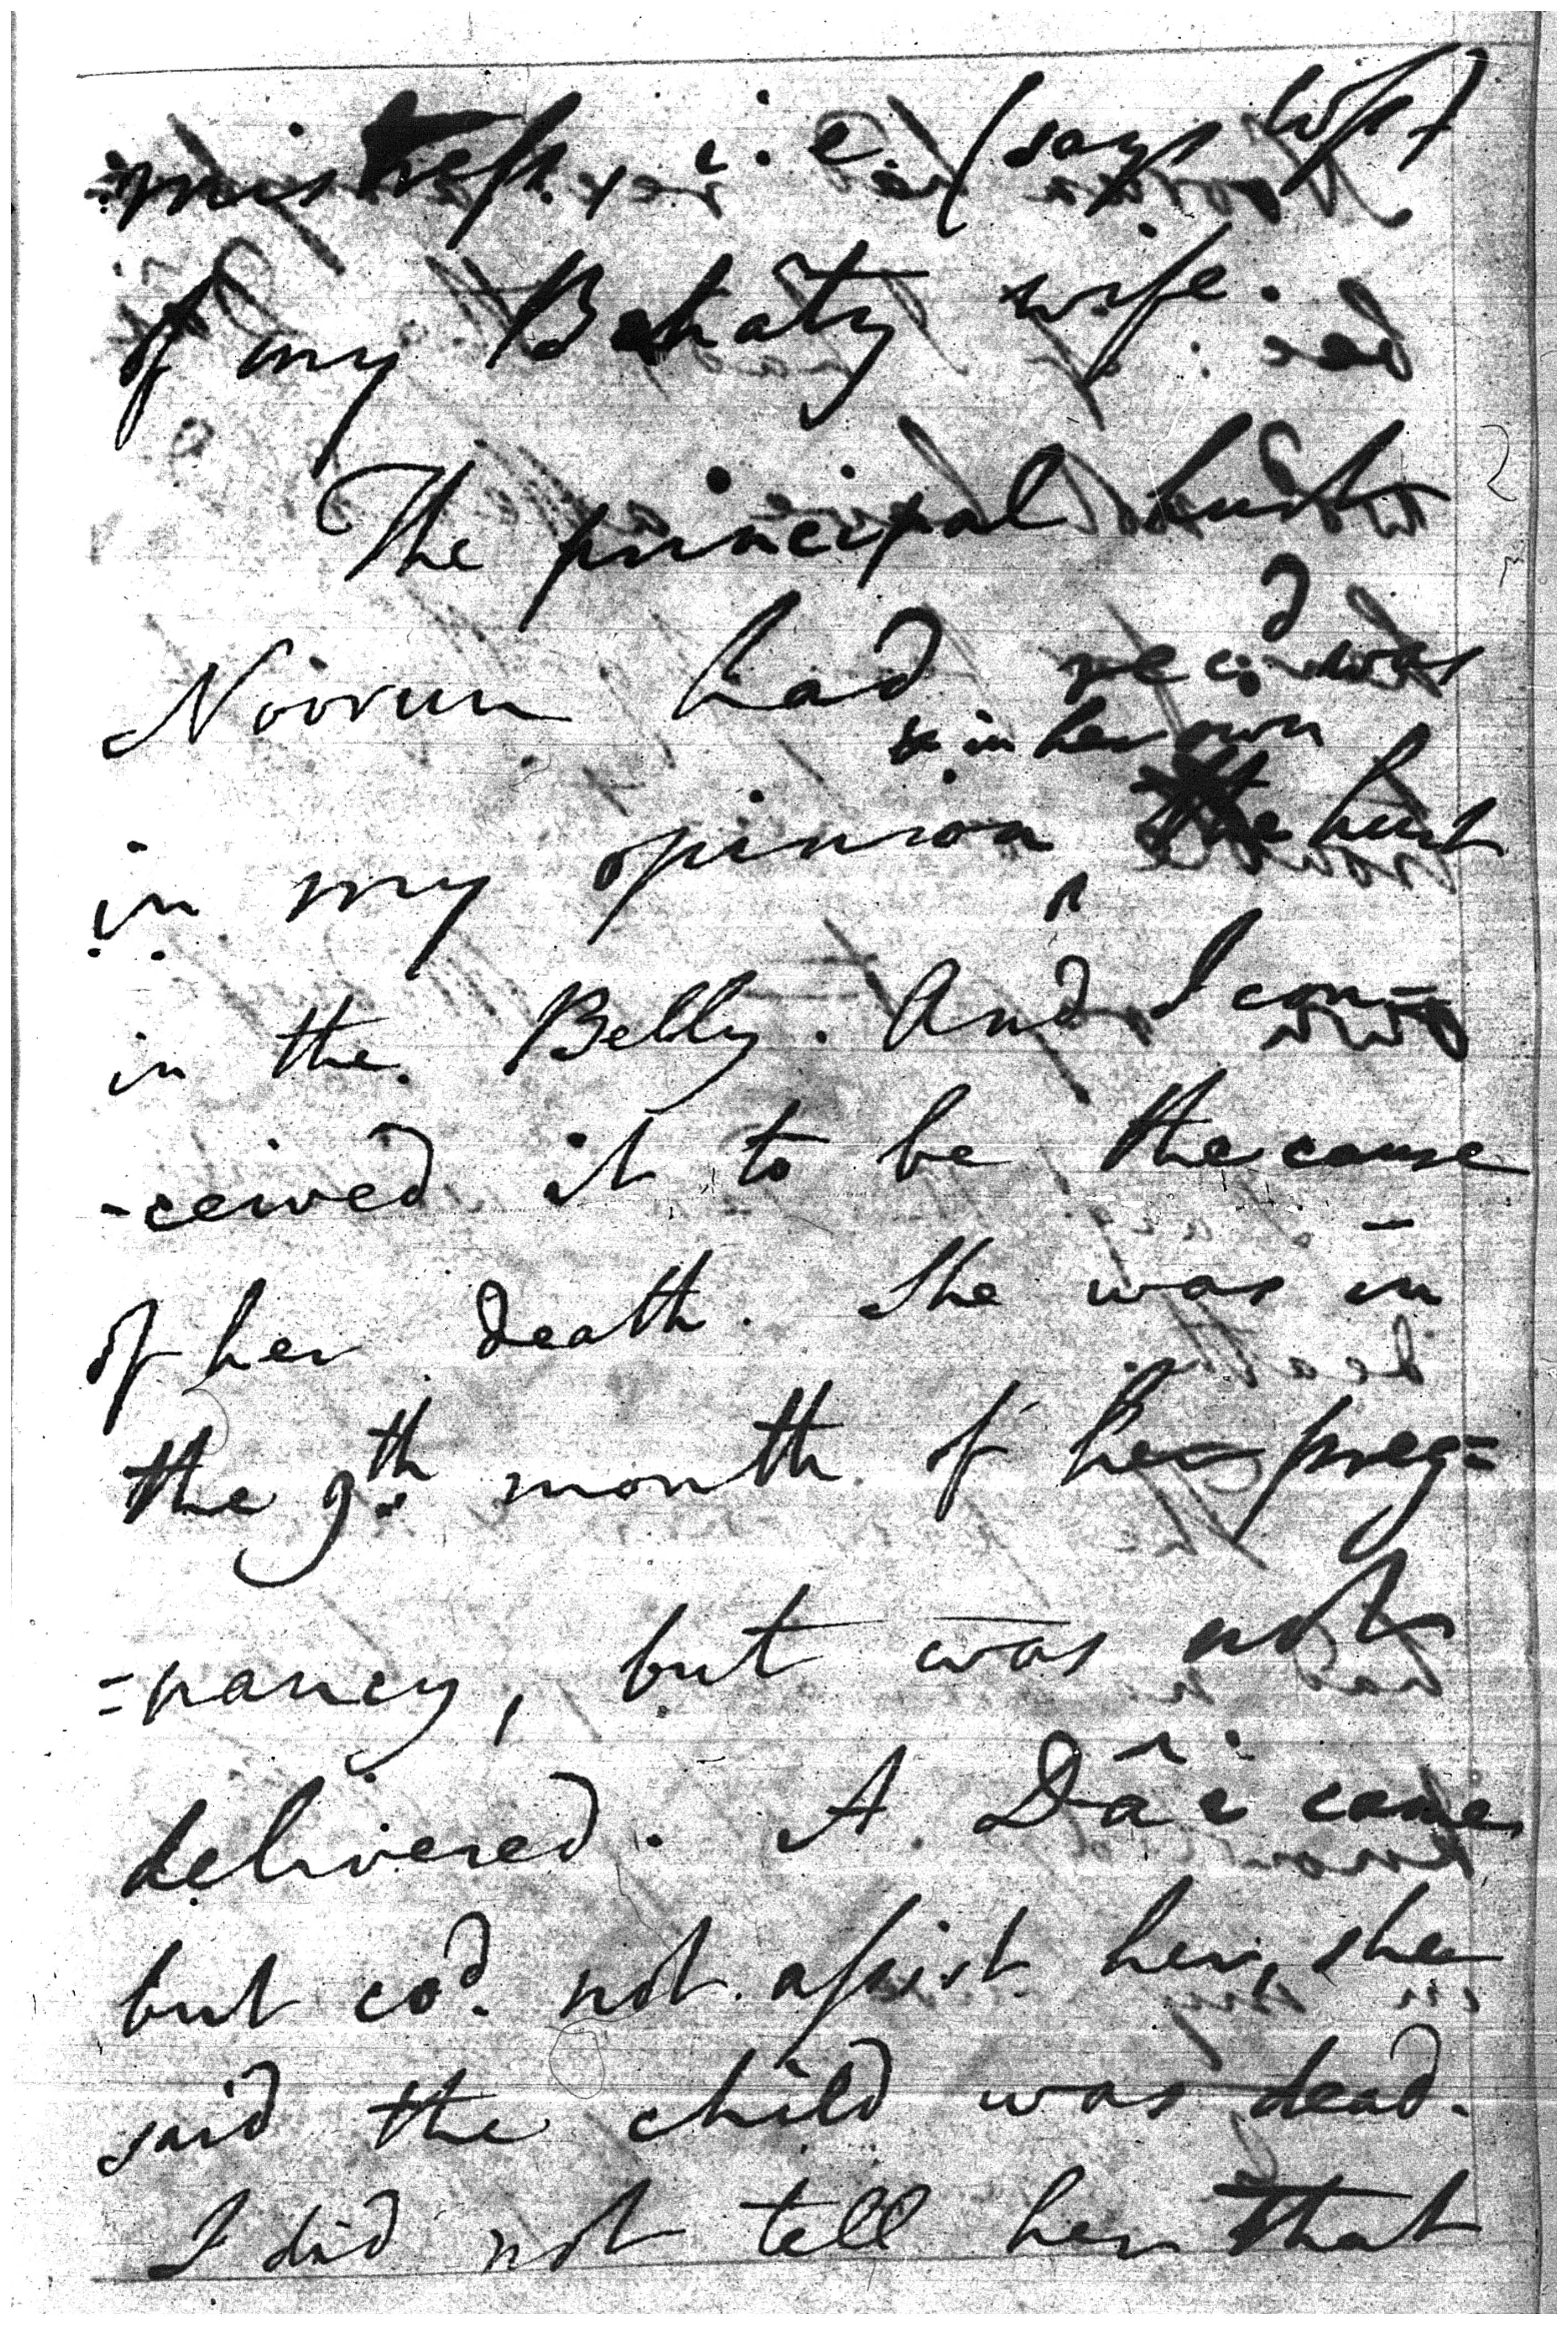 mistress, i.e. (says
of my Behaty wife.
The principal hurt
Noorun had rec.d was
& in her own
in my opinion the hurt
in the Belly. And I con=
-ceived it to be the cause
of her death. She was in
the 9.th month of her preg=
=nancy, but was not
delivered. A Dâi came
but co.d not assist her, she
said the child was dead.
I did not tell her that